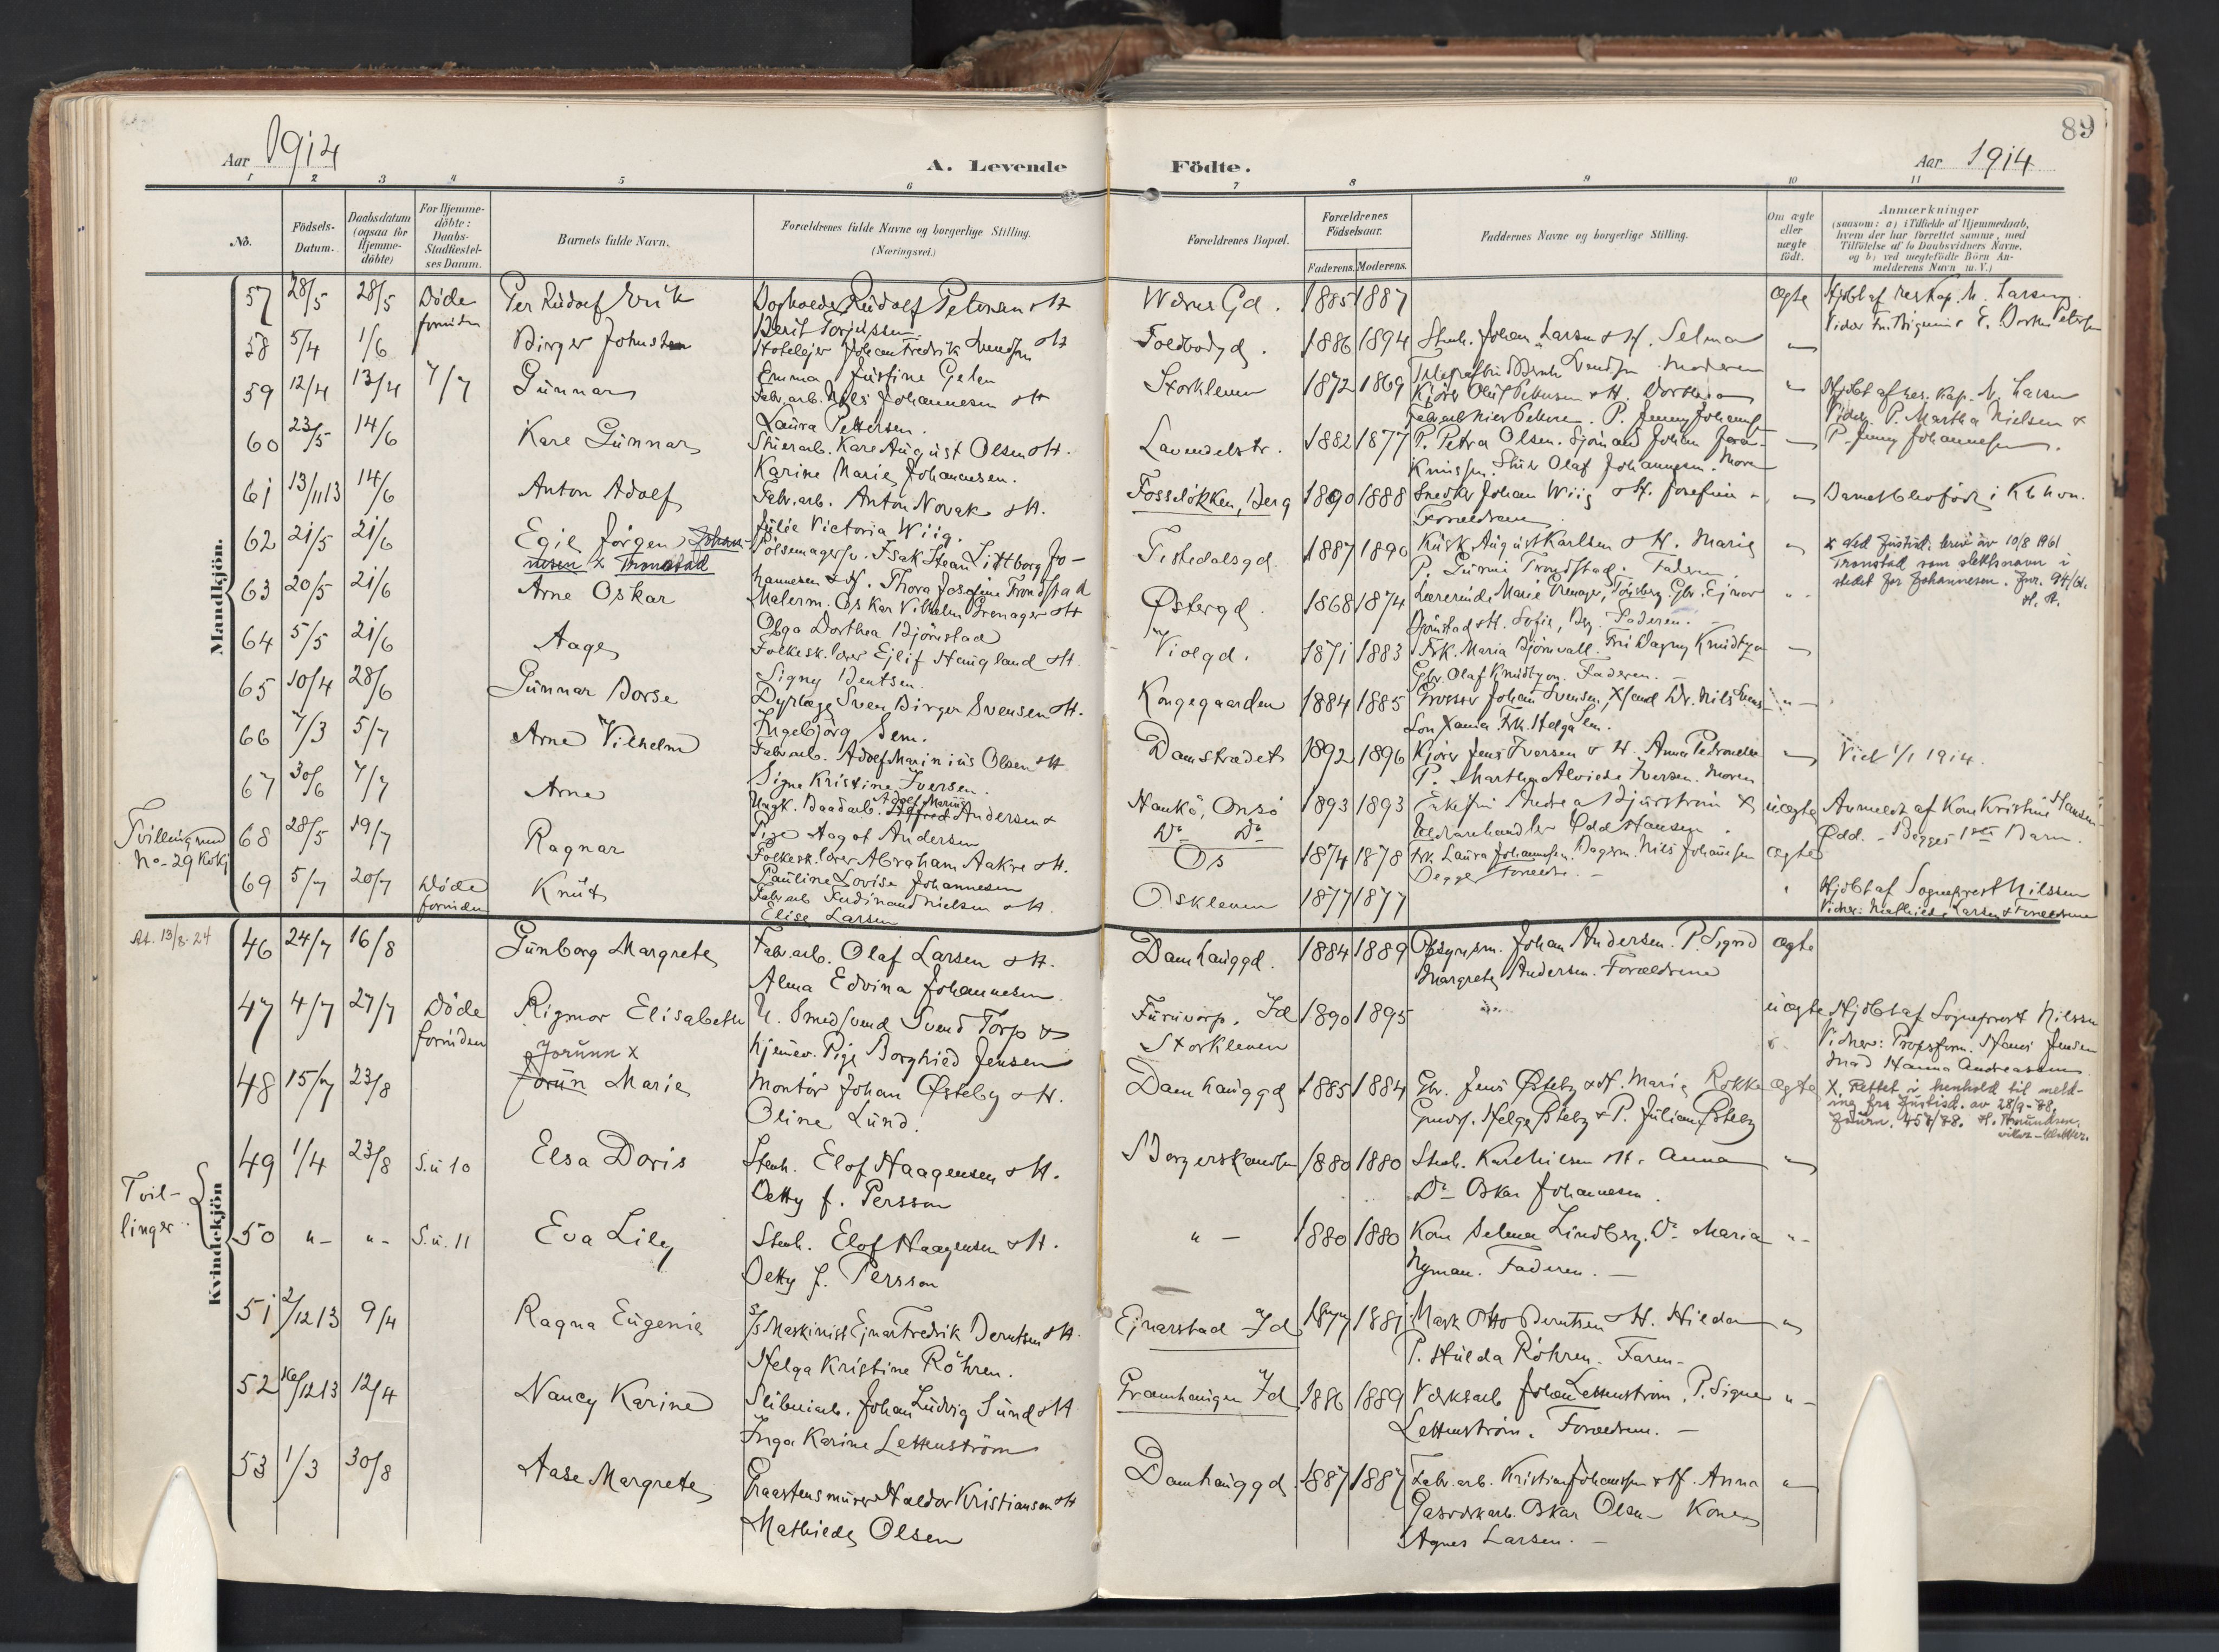 89
Aar 1914
A. Levende Födte.
Aar 1914
1 2 3 4 5 6 7 8 9 10 11
No.
Födsels-Datum.
Daabsdatum (ogsaa for Hjemme-döbte)
For Hjemme-döbte: Daabs-Stadfæstel-ses Datum.
Barnets fulde Navn.
Forældrenes fulde Navne og borgerlige Stilling.
(Næringsvei.)
Forældrenes Bopæl.
Forældrenes Födselsaar.
Faderens. Moderens.
Faddernes Navne og borgerlige Stilling.
Om ægte eller uægte födt.
Anmærkninger
(saasom: a) i Tilfælde af Hjemmedaab,
hvem der har forrettet samme, med
Tilföielse af to Daabsvidners Navne,
og b) ved uægtefödte Börn An-
melderens Navn m. V.)
Mandkjön.
57 28/5 28/5 Döde forinden Per Rüdolf Erik
Rüdolf Petersen & H
Berit Torjüssen
Wærns Gd. 1885 1887 ægte
Hjdbt af res. Kap. N. Larsen
58 5/4 1/6 Birger Johnsten
Hotelejer Johan Fredrik &H
Emma Jüstine
Toldbodgd. 1886 1894 Stenh. Johan Larsen & H. Selma "
59 12/4 13/4 7/7 Günnar
Fabr.arb. Nils Johannesen & H
Laüra Pettersen.
Storkleven 1872 1869 Kjörer Olüf Pettersen & H. Dorthea "
P. Jenny Johannes
Hjdbt af res. Kap. N. Larsen
Vidn. P. Martha Nielsen &
P. Jenny Johannesen.
60 23/5 14/6 Kare Günnar
Stüerarb. Kare Aügüst Olsen & H.
Karine Marie Johannesen.
Lavendelstr. 1882 1877 P. Petra Olsen. Sjömand Johan
Knüssen. Stüer Olaf Johannesen. Moren "
61 13/11 13 14/6 Anton Adolf
Fabr.arb. Anton Novak & H.
Jülie Victoria Wiig.
Fosselökken, Berg 1890 1888 Snedker Johan Wiig & H. Josefine
Forældrene "
Barnet blev födt i Kbhvn.
62 21/5 21/6 Egil Jörgen Johan-
nesen x Tronstad
Pölsemagersv. Isak Stean Littborg Jo-
hannesen & H. Thora Josefine Trondstad
Tistedalsgd. 1887 1890 Küsk Aügüst Karlsen & H. Marie
P. Günni Trondstad. Faderen "
x Ved Justisd. brev av 10/8 1961
Tronstad som slektsnavn i
stedet for Johannesen. Jnr. 94/61.
63 20/5 21/6 Arne Oskar
Malerm. Oskar Vilhelm Grenager & H
Olga Dorthea Björnstad
Østergd. 1868 1874 Lærerinde Marie Grenager, Tönsberg. Gbr. Ejnar
Björnstad & H. Sofie, Berg. Faderen. "
64 5/5 21/6 Aage
Folkesk. lærer Ejlif Haügland & H.
Signy Bentsen.
Violgd. 1871 1883 Frk. Maria Björnvall. Frü Dagny Knüdtzon
Gbr. Olaf Knüdtzon. Faderen. "
65 10/4 28/6 Günnar Borse
Dyrlæge Sven Birger Svensen & H.
Ingebjörg Sem.
Kongegaarden 1884 1885 Grosser Johan Svensen, Dr. Nils Svens
Frk. Helga Sem. "
66 7/3 5/7 Arne Vilhelm
Fabr.arb. Adolf Marinius Olsen & H
Signe Kristine Iversen.
Damstrædet 1892 1896 Kjörer Jens Iversen & H. Anna Petronelle
P. Marthea Alvilde Iversen. Moren "
Viet 1/1 1914.
67 30/6 7/7 Arne
Ungk. Baadarb. Alfred Adolf Marius Andersen &
Pige Aagot Andersen
Hankö, Onsö 1893 1893 Enkefrü Andrea Bjürström &
Uldvarehandler Odd Hansen. üægte
Anmeldt af Kone Kristine Hansen
Odd. - Begges 1ste Barn.
Tvilling med
No. 29 Kvkj
68 28/5 19/7 Ragnar
Folkesk. lærer Abraham Aakre & H.
Paüline Lovise Johannesen
Do Do
Os 1874 1878 Frk. Laüra Johannesen. Nils Johannesen
Begge Forældre. ægte
69 5/7 20/7 Döde forinden Knüt
Fabr.arb Ferdinand Nielsen & H.
Elise Larsen
Oskleven 1877 1877 "
Hjdbt af Sogneprest Nilssen
Kvindekjön
At. 13/8-24
46 24/7 16/8 Günborg Margrete
Fabr.arb. Olaf Larsen & H.
Alma Edvina Johannesen.
Damhaüggd. 1884 1889 Opsynsm. Johan Andersen. P. Sigrid
Margrete Andersen. Forældrene ægte
47 4/7 27/7 Döde forinden Rigmor Elisabeth
U. Smedsvend Svend Torp &
hjemmev. Pige Borghild Jensen
Fürüvarp, Id
Storkleven 1890 1895 üægte
Hjdbt af Sogneprest Nilssen
Vidner: Hans Jensen
Hanna Andreassen
48 15/7 23/8 Jorunn x
Jorün Marie
Montör Johan Østeby & H.
Oline Lünd.
Damhaüggd 1885 1884 Gbr. Jens Østeby & H. Marie Rokke
Helge Østeby & P. Julian Østeby ægte
X. Rettet i henhold til meld-
ing fra Justisd. av 28/9-78.
Journ. 457/78. H. Amundsen.
Tvil-
linger
49 1/4 23/8 S.ü 10 Elsa Doris
Stenh. Elof Haagensen & H.
Betty f. Persson
1880 1880 Stenh. Karl Nilsen & H. Anna
Do Oskar Johannesen. "
50 " - " - S.ü. 11 Eva Lily
Stenh. Elof Haagensen & H.
Betty f. Persson
" - 1880 1880 Kone Selma Lindberg. Do Maria
Nyman. Faderen. - " -
51 2/12 13 9/4 Ragna Eügenie
S/S Maskinist Ejnar Fredrik Berntsen & H.
Helga Kristine Röhren.
Ejnarstad Id 1877 1881 Mask Otto Berntsen & H. Hilda
P. Hülda Röhren. Faren - "
52 16/12 13 12/4 Nancy Karine
Sliberiarb. Johan Lüdvig Sünd & H
Inga Karine Lettenström
Gramhaügen Id 1886 1889 Værksarb Johan Lettenström. P. Signe
Lettenström. Forældrene. - " -
53 1/3 30/8 Aase Margrete
Graastensmürer Haldor Kristiansen & H
Mathilde Olsen
Damhaüggd. 1887 1887 Fabr.arb. Kristian Johansen & H. Anna
Gasværkarb. Oskar Olsen - Kone
Agnes Larsen. - "